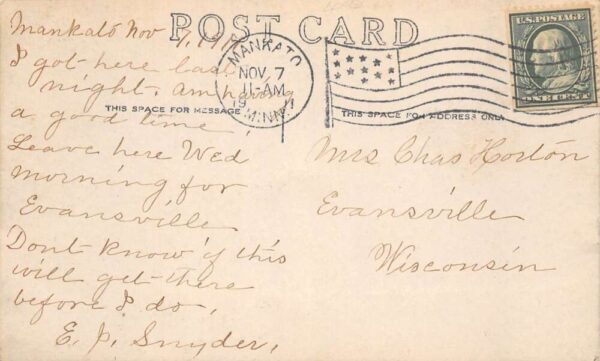 POST CARD
Mankato Nov 7, 1911
I got here last
night. am having
a good time,
Leave here Wed
morning for
Evansville
Dont know if this
will get there
before I do,
E. P. Snyder,
MANKATO
NOV 7
11-AM
19 11
MINN.
U.S. POSTAGE
ONE CENT
THIS SPACE FOR MESSAGE
THIS SPACE FOR ADDRESS ONLY
Mrs Chas Horton
Evansville
Wisconsin